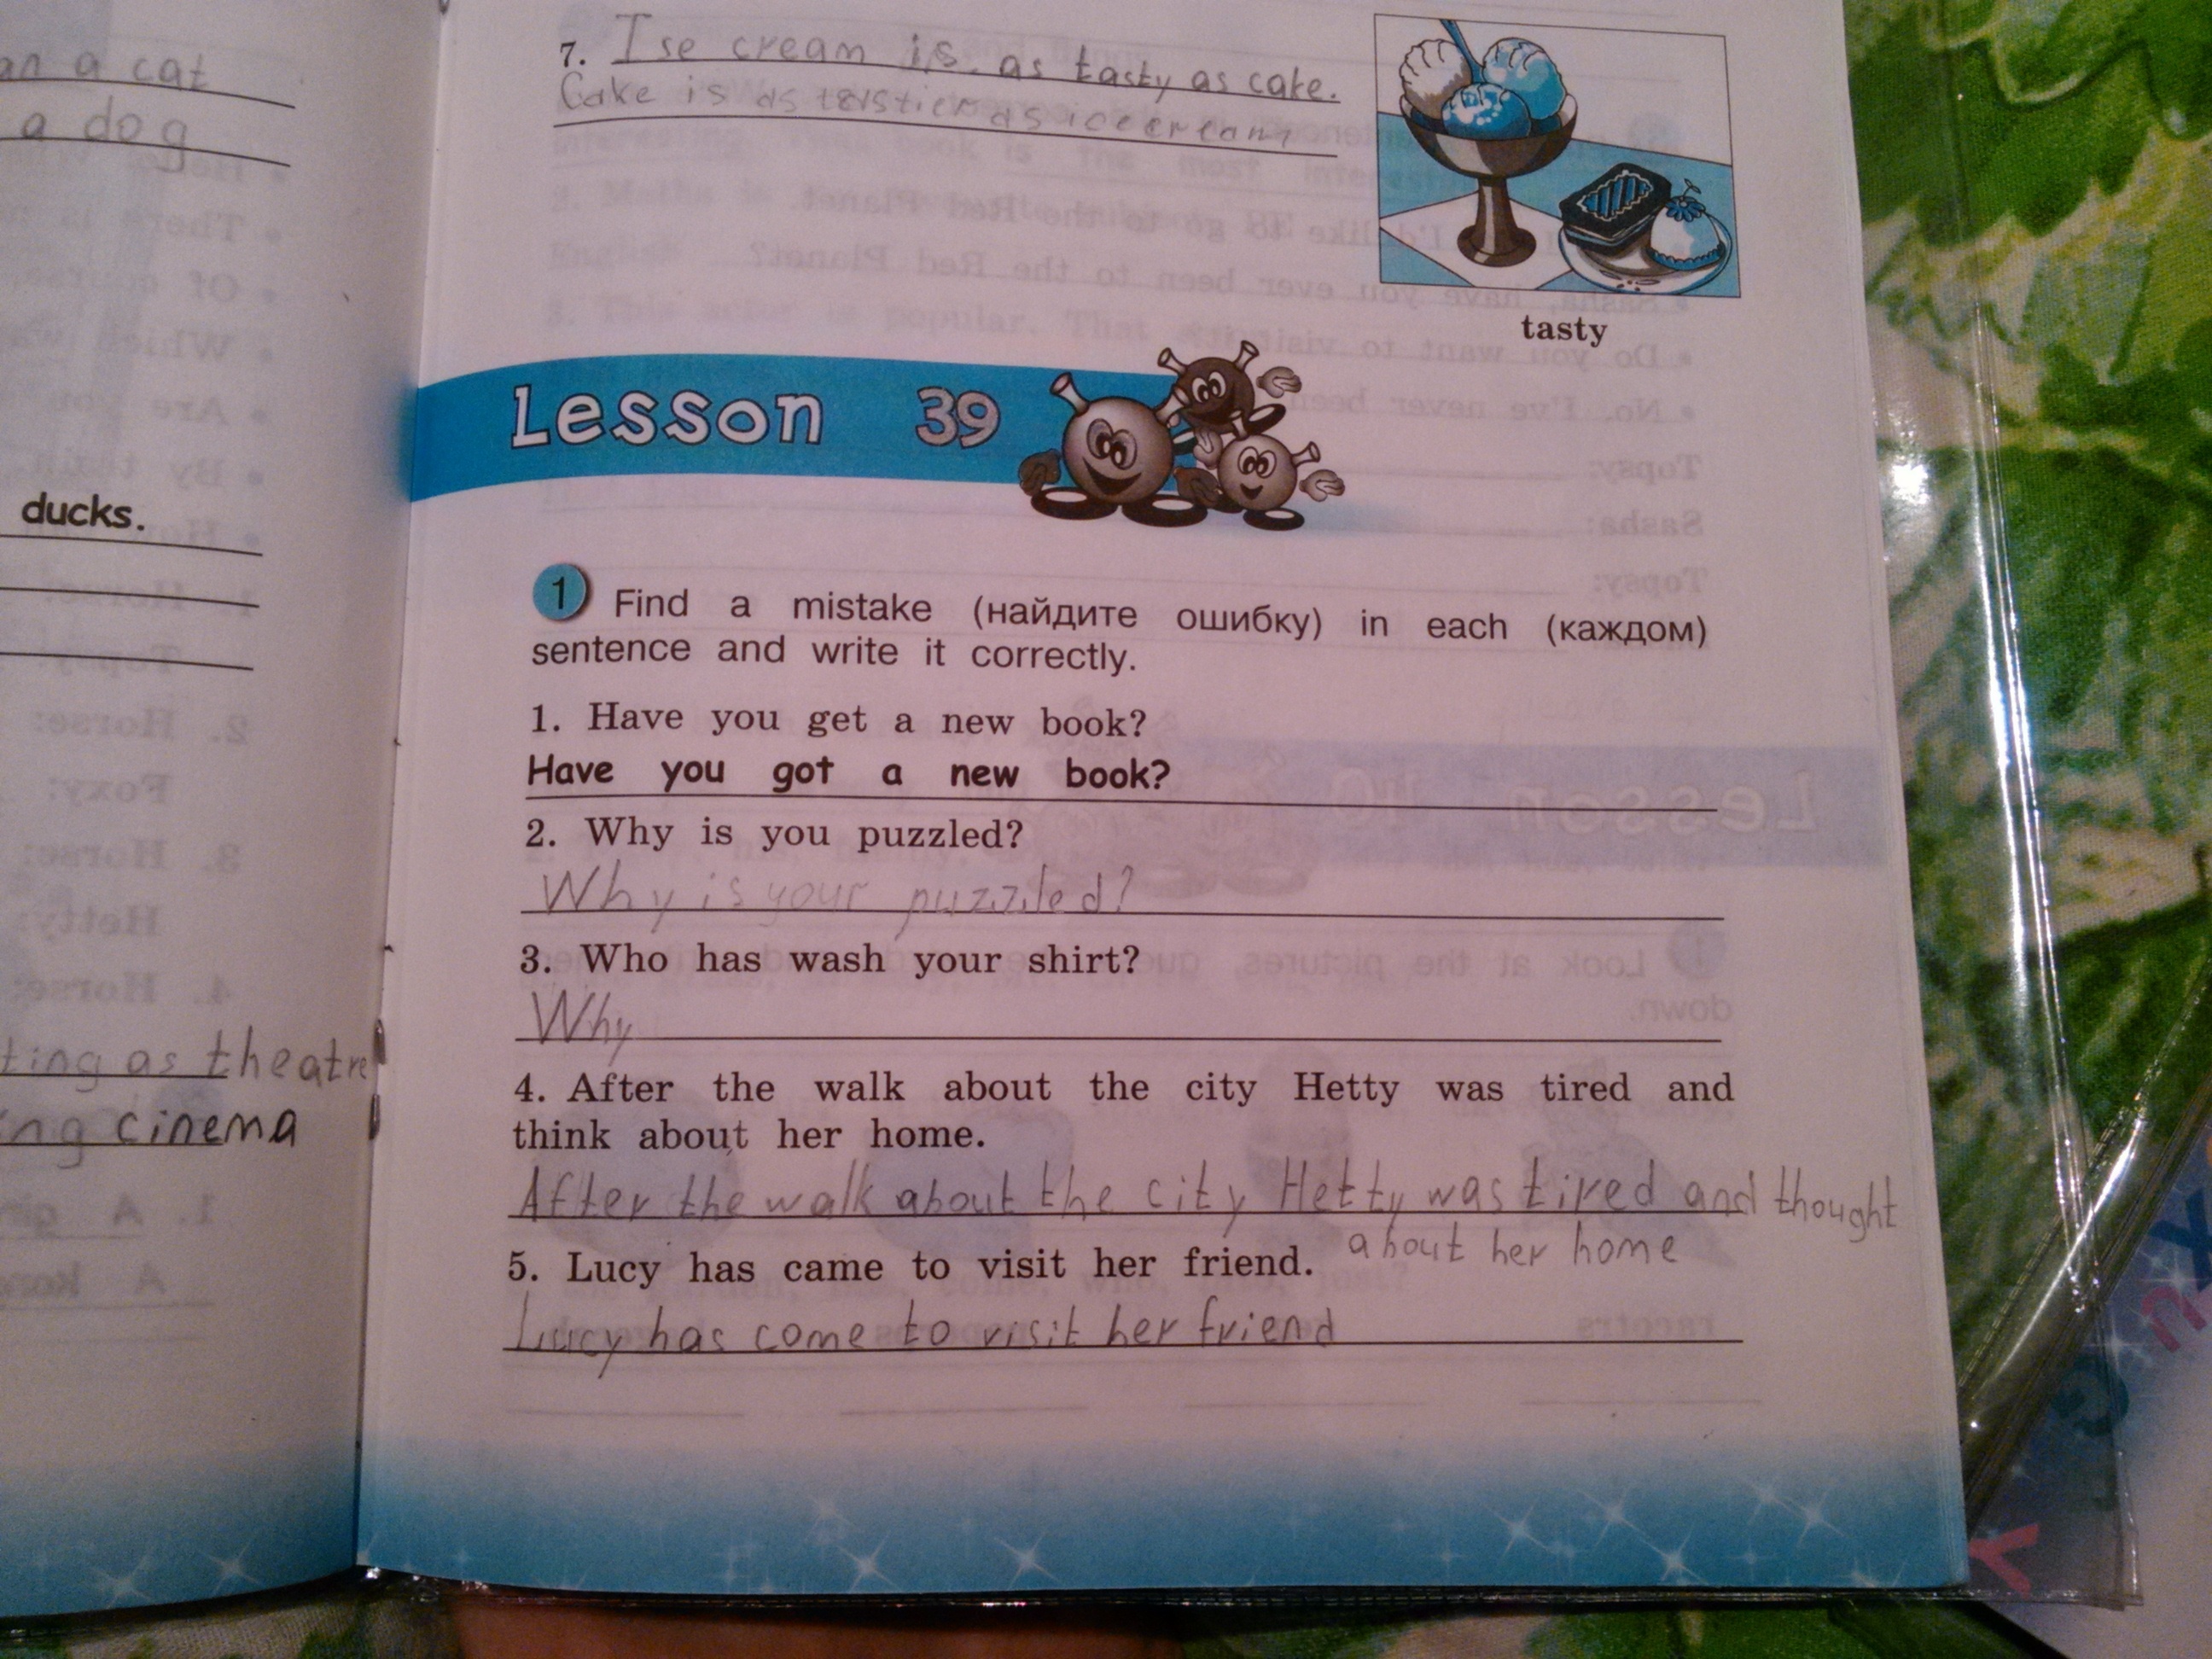 an a cat
a dog
ducks.
ting as theatre
ing cinema
7. Ise cream is as tasty as cake.
Cake is as as ice cream
tasty
Lesson 39
1 Find a mistake (найдите ошибку) in each (каждом)
sentence and write it correctly.
1. Have you get a new book?
Have you got a new book?
2. Why is you puzzled?
Why is your puzzled?
3. Who has wash your shirt?
Why
4. After the walk about the city Hetty was tired and
think about her home.
After the walk about the city Hetty was tired and thought
about her home
5. Lucy has came to visit her friend.
Lucy has come to visit her friend